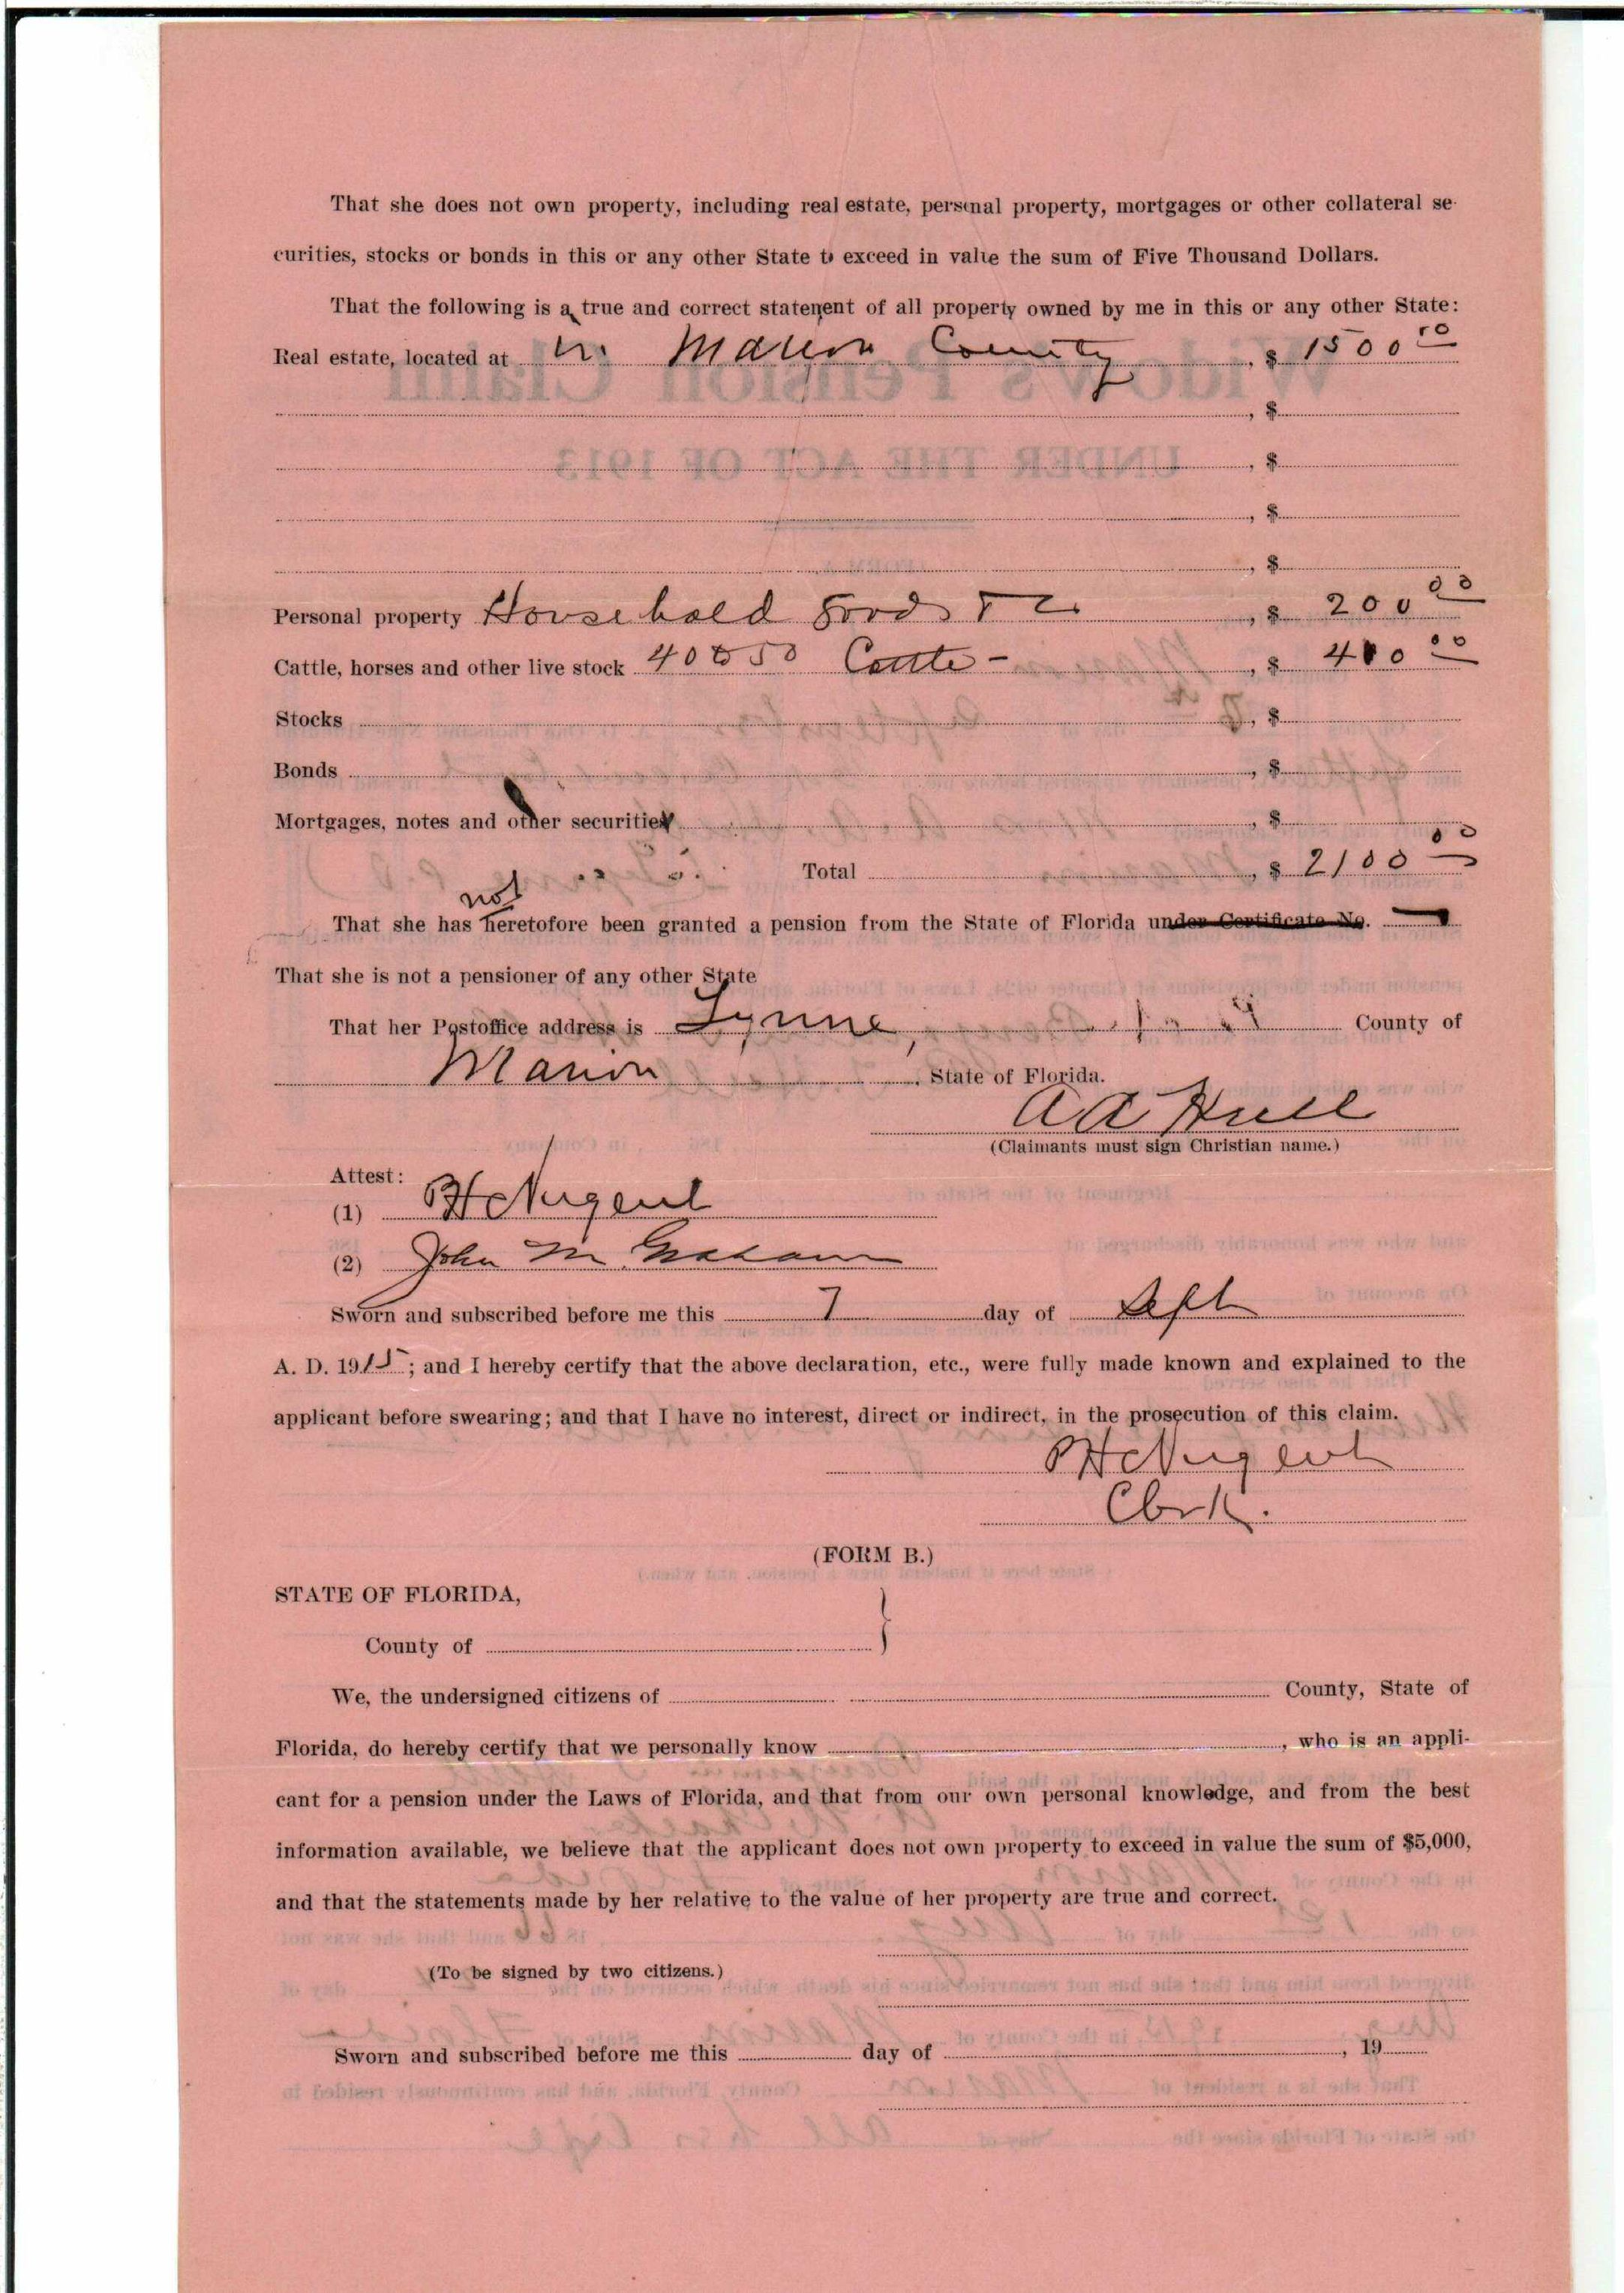 That she does not own property, including real estate, personal property, mortgages or other collateral se-
curities, stocks or bonds in this or any other State to exceed in value the sum of Five Thousand Dollars.
That the following is a true and correct statement of all property owned by me in this or any other State:
Real estate, located at in Marion County, $ 1500 00
, $
, $
, $
, $
Personal property Household Goods & c, $ 200 00
Cattle, horses and other live stock 40 to 50 Cattle -, $ 400 00
Stocks , $
Bonds , $
Mortgages, notes and other securities , $
Total , $ 2100 00
not
That she has heretofore been granted a pension from the State of Florida under Certificate No.
That she is not a pensioner of any other State
That her Postoffice address is Lynne, County of
Marion, State of Florida.
A A Hull
(Claimants must sign Christian name.)
Attest:
(1) P H Nugent
(2) John M Graham
Sworn and subscribed before me this 7 day of Sept
A. D. 1915; and I hereby certify that the above declaration, etc., were fully made known and explained to the
applicant before swearing; and that I have no interest, direct or indirect, in the prosecution of this claim.
P H Nugent
Clerk.
(FORM B.)
STATE OF FLORIDA,
County of }
We, the undersigned citizens of County, State of
Florida, do hereby certify that we personally know , who is an appli-
cant for a pension under the Laws of Florida, and that from our own personal knowledge, and from the best
information available, we believe that the applicant does not own property to exceed in value the sum of $5,000,
and that the statements made by her relative to the value of her property are true and correct.
(To be signed by two citizens.)
Sworn and subscribed before me this day of , 19